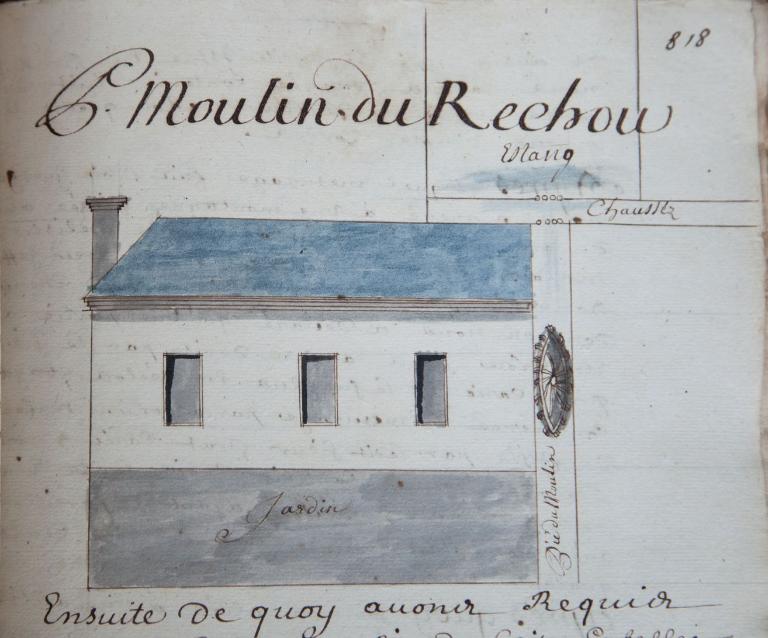 818
P. Moulin du Rechou
Estang
Chaussée
Jardin
Bié du Moulin
Ensuite de quoy auons Requis